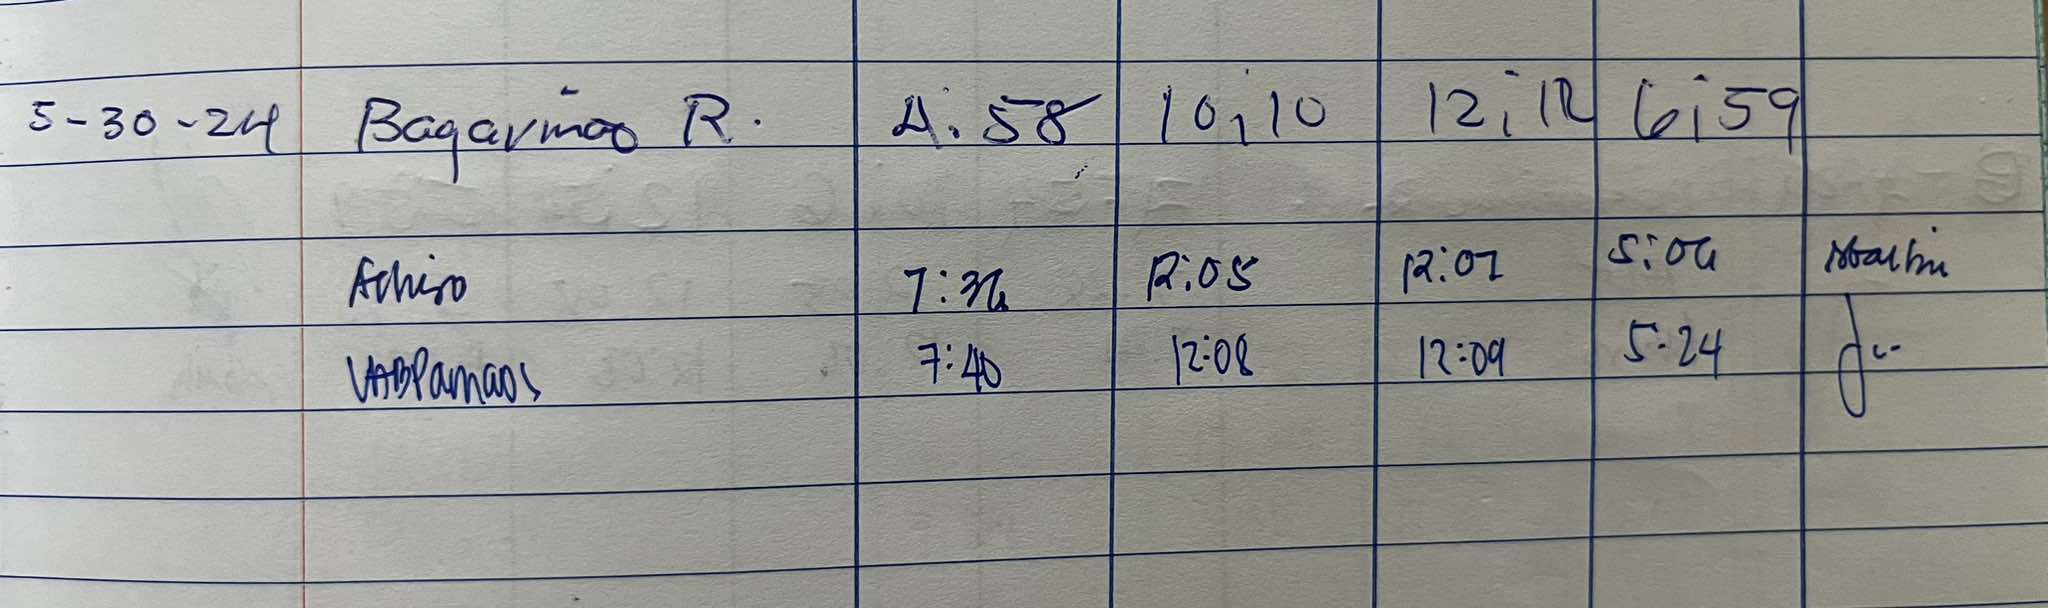 5-30-24 Bagarinao R. 4:58 10:10 12:12 6:59
Achiro 7:36 12:05 12:07 5:04
VABPamaos 7:40 12:08 12:09 5:24